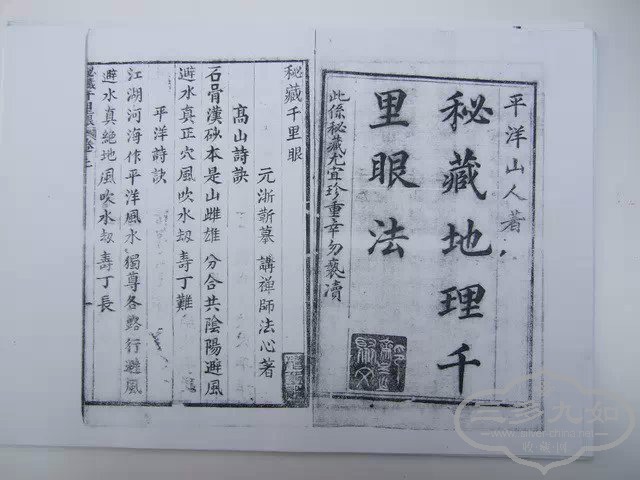 平洋山人著
秘藏地理千
里眼法
此係秘藏尤宜珍重幸勿褻瀆
秘藏千里眼
元浙蘄摹 講禪師法心著
高山詩訣
石骨漢砂本是山雌雄 分合共陰陽避風
避水真正穴風吹水刼 壽丁難
平洋詩訣
江湖河海作平洋風水 獨尊各路行避風
避水真絕地風吹水刼 壽丁長
三多九如
收藏網